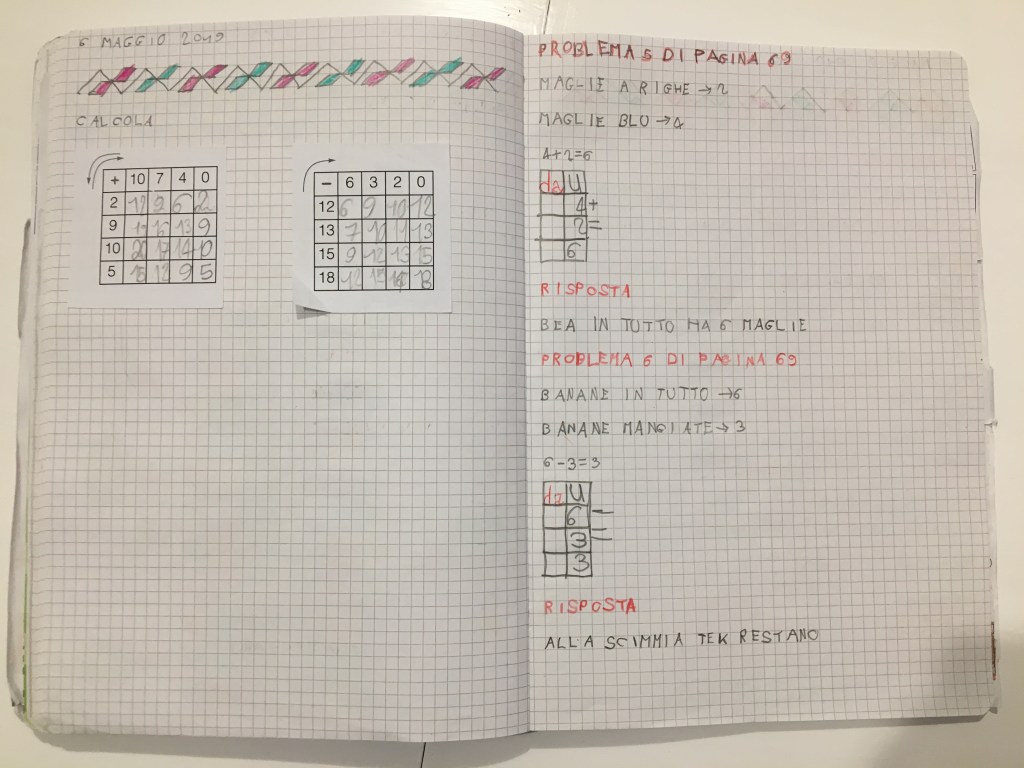 6 MAGGIO 2019
CALCOLA
+ 10 7 4 0
2 12 9 6 2
9 19 16 13 9
10 20 17 14 10
5 15 12 9 5
- 6 3 2 0
12 6 9 10 12
13 7 10 11 13
15 9 12 13 15
18 12 15 16 18
PROBLEMA 5 DI PAGINA 69
MAGLIE A RIGHE → 2
MAGLIE BLU → 4
4+2=6
da U
4 +
2 =
6
RISPOSTA
BEA IN TUTTO HA 6 MAGLIE
PROBLEMA 6 DI PAGINA 69
BANANE IN TUTTO → 6
BANANE MANGIATE → 3
6-3=3
da U
6 -
3 =
3
RISPOSTA
ALLA SCIMMIA TEK RESTANO